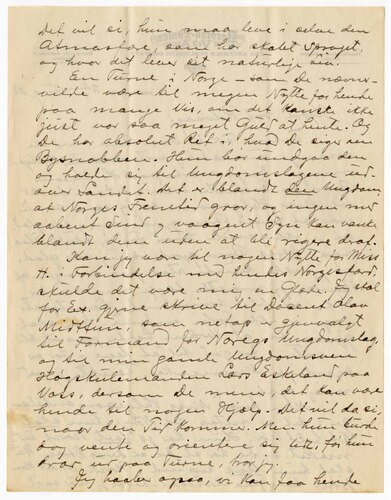 Det vil si, hun maa leve i selve den
Atmosfære, som har skabt Sproget,
og hvor det lever sit naturlige Liv.
En Turne i Norge – som De nævner –
vilde være til megen Nytte for hende
paa mange Vis, om det kanske ikke
just var saa meget Guld at hente. Og
De har absolut Ret i, hvad De siger om
Bysnobben. Hun bør undgaa den
og holde sig til Ungdomslagene ud-
over Landet. Det er blandt den Ungdom,
at Norges Fremtid gror, og ingen med
aabent Sind og vaagent Syn kan vanke
blandt dem uden at bli rigere deraf.
Kan jeg være til nogen Nytte for Miss
H. i Forbindelse med hendes Norgesfærd,
skulde det være mig en Glæde. Jeg skal
for Ex. gjerne skrive til Docent Olav
Midttun, som netop er gjenvalgt
til Formand for Noregs Ungdomslag,
og til min gamle Ungdomsven
Høgskulemanden Lars Eskeland paa
Voss, dersom De mener, det kan være
hende til nogen Hjælp. Det vil da si,
naar den Tid kommer. Men hun burde
dog vente og orientere sig lidt, før hun
drar ud paa Turne, tror jeg.
Jeg haaber ogsaa, vi kan faa hende